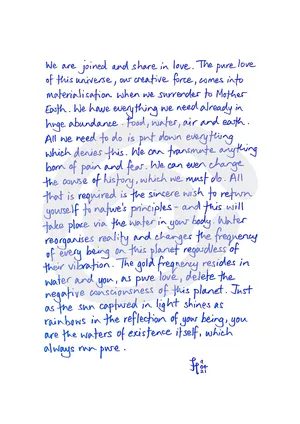 We are joined and share in love. The pure love
of this universe, our creative force, comes into
materialisation when we surrender to Mother
Earth. We have everything we need already in
huge abundance. Food, water, air and earth.
All we need to do is put down everything
which denies this. We can transmute anything
born of pain and fear. We can even change
the course of history, which we must do. All
that is required is the sincere wish to return
yourself to nature's principles - and this will
take place via the water in your body. Water
reorganises reality and changes the frequency
of every being on this planet regardless of
their vibration. The gold frequency resides in
water and you, as pure love, delete the
negative consciousness of this planet. Just
as the sun captured in light shines as
rainbows in the reflection of your being, you
are the waters of existence itself, which
always run pure.